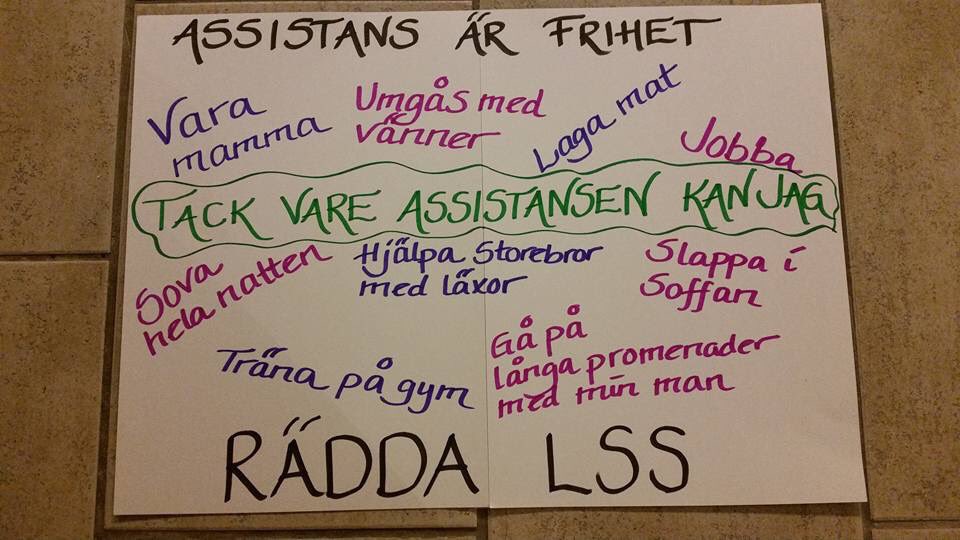 ASSISTANS ÄR FRIHET
Vara
mamma
Umgås med
vänner
Laga mat
Jobba
TACK VARE ASSISTANSEN KAN JAG
Sova
hela natten
Hjälpa Storebror
med läxor
Slappa i
Soffan
Träna på gym
Gå på
långa promenader
med min man
RÄDDA LSS